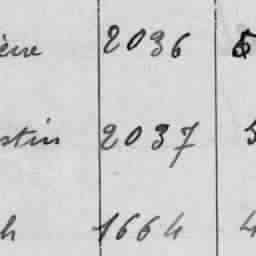 ière 2036 5
stin 2037 3
h 1664 4